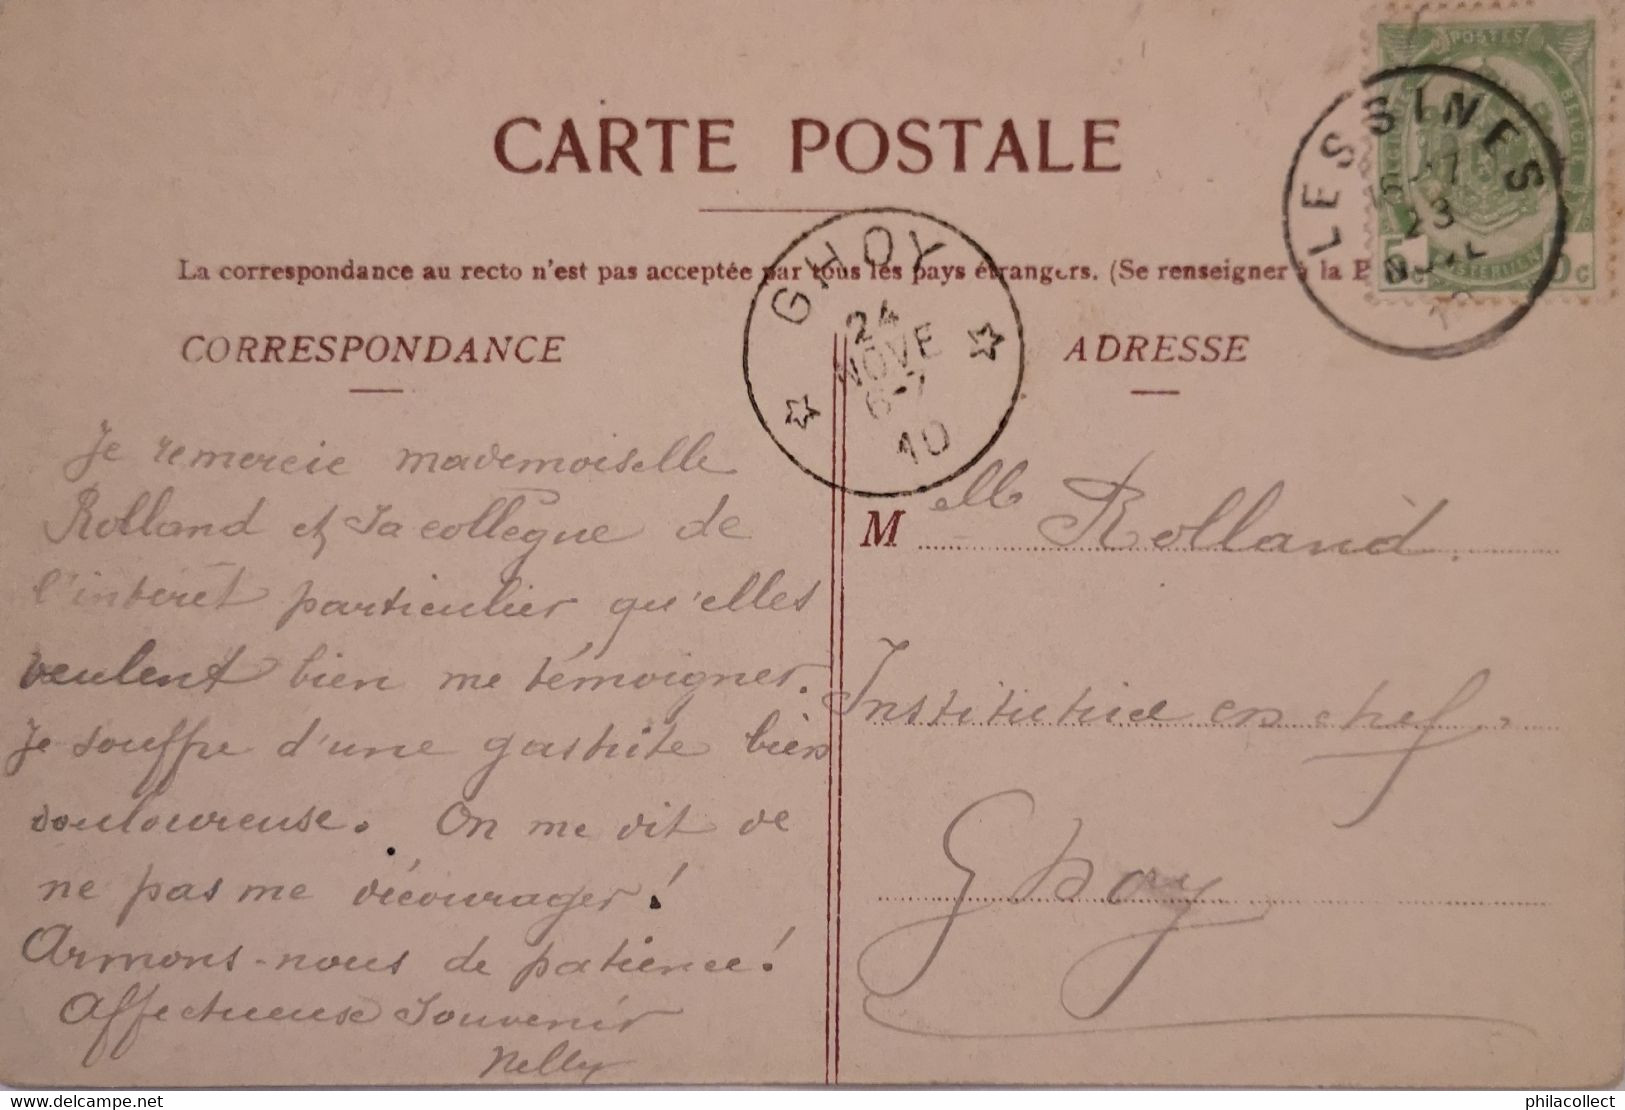 CARTE POSTALE
La correspondance au recto n'est pas acceptée par tous les pays étrangers. (Se renseigner à la P
CORRESPONDANCE
ADRESSE
POSTES
BELGIE
LESSINES
23
GHOY
24
NOVE
6-7
10
Je remercie mademoiselle
Rolland et sa collègue de
l'intérêt particulier qu'elles
veulent bien me témoigner.
Je souffre d'une gastrite bien
douloureuse. On me dit de
ne pas me décourager!
Armons-nous de patience!
Affectueuse Souvenir
Nelly
Melle Rolland.
Institutrice en chef.
Ghoy
www.delcampe.net
philacollect